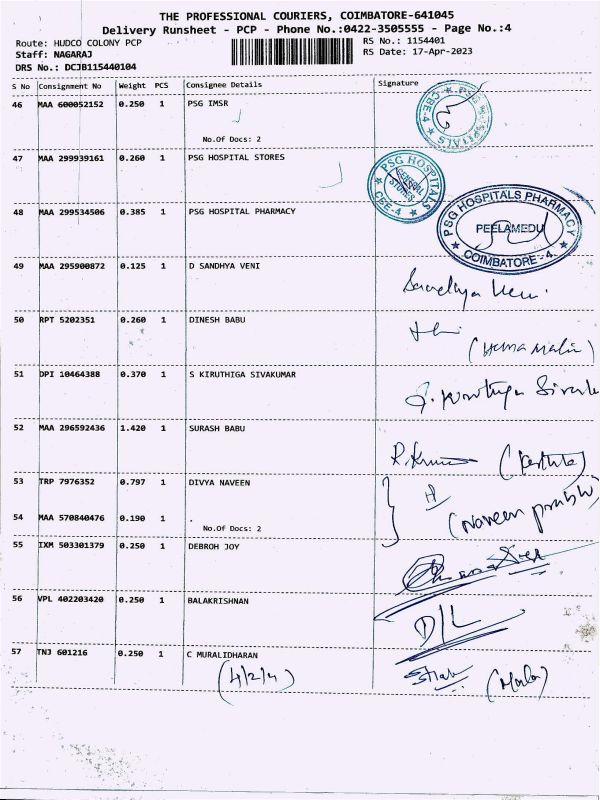 THE PROFESSIONAL COURIERS, COIMBATORE-641045
Delivery Runsheet - PCP - Phone No.:0422-3505555 - Page No.:4
Route: HUDCO COLONY PCP RS No.: 1154401
Staff: NAGARAJ RS Date: 17-Apr-2023
DRS No.: DCJB115440104
S No Consignment No Weight PCS Consignee Details Signature
46 MAA 600052152 0.250 1 PSG IMSR
No.Of Docs: 2
PSG HOSPITALS CBE-4
47 MAA 299939161 0.260 1 PSG HOSPITAL STORES
PSG HOSPITALS GENERAL STORES CBE-4
48 MAA 299534506 0.385 1 PSG HOSPITAL PHARMACY
PSG HOSPITALS PHARMACY PEELAMEDU COIMBATORE-4.
49 MAA 295900872 0.125 1 D SANDHYA VENI
Sandhya Veni.
50 RPT 5202351 0.260 1 DINESH BABU
(Hema Malini)
51 DPI 10464388 0.370 1 S KIRUTHIGA SIVAKUMAR
S. Kiruthiga
52 MAA 296592436 1.420 1 SURASH BABU
53 TRP 7976352 0.797 1 DIVYA NAVEEN
(Naveen prabhu)
54 MAA 570840476 0.190 1 .
No.Of Docs: 2
55 IXM 503301379 0.250 1 DEBROH JOY
56 VPL 402203420 0.250 1 BALAKRISHNAN
D/L
57 TNJ 601216 0.250 1 C MURALIDHARAN
(4/2/4) (Mala)